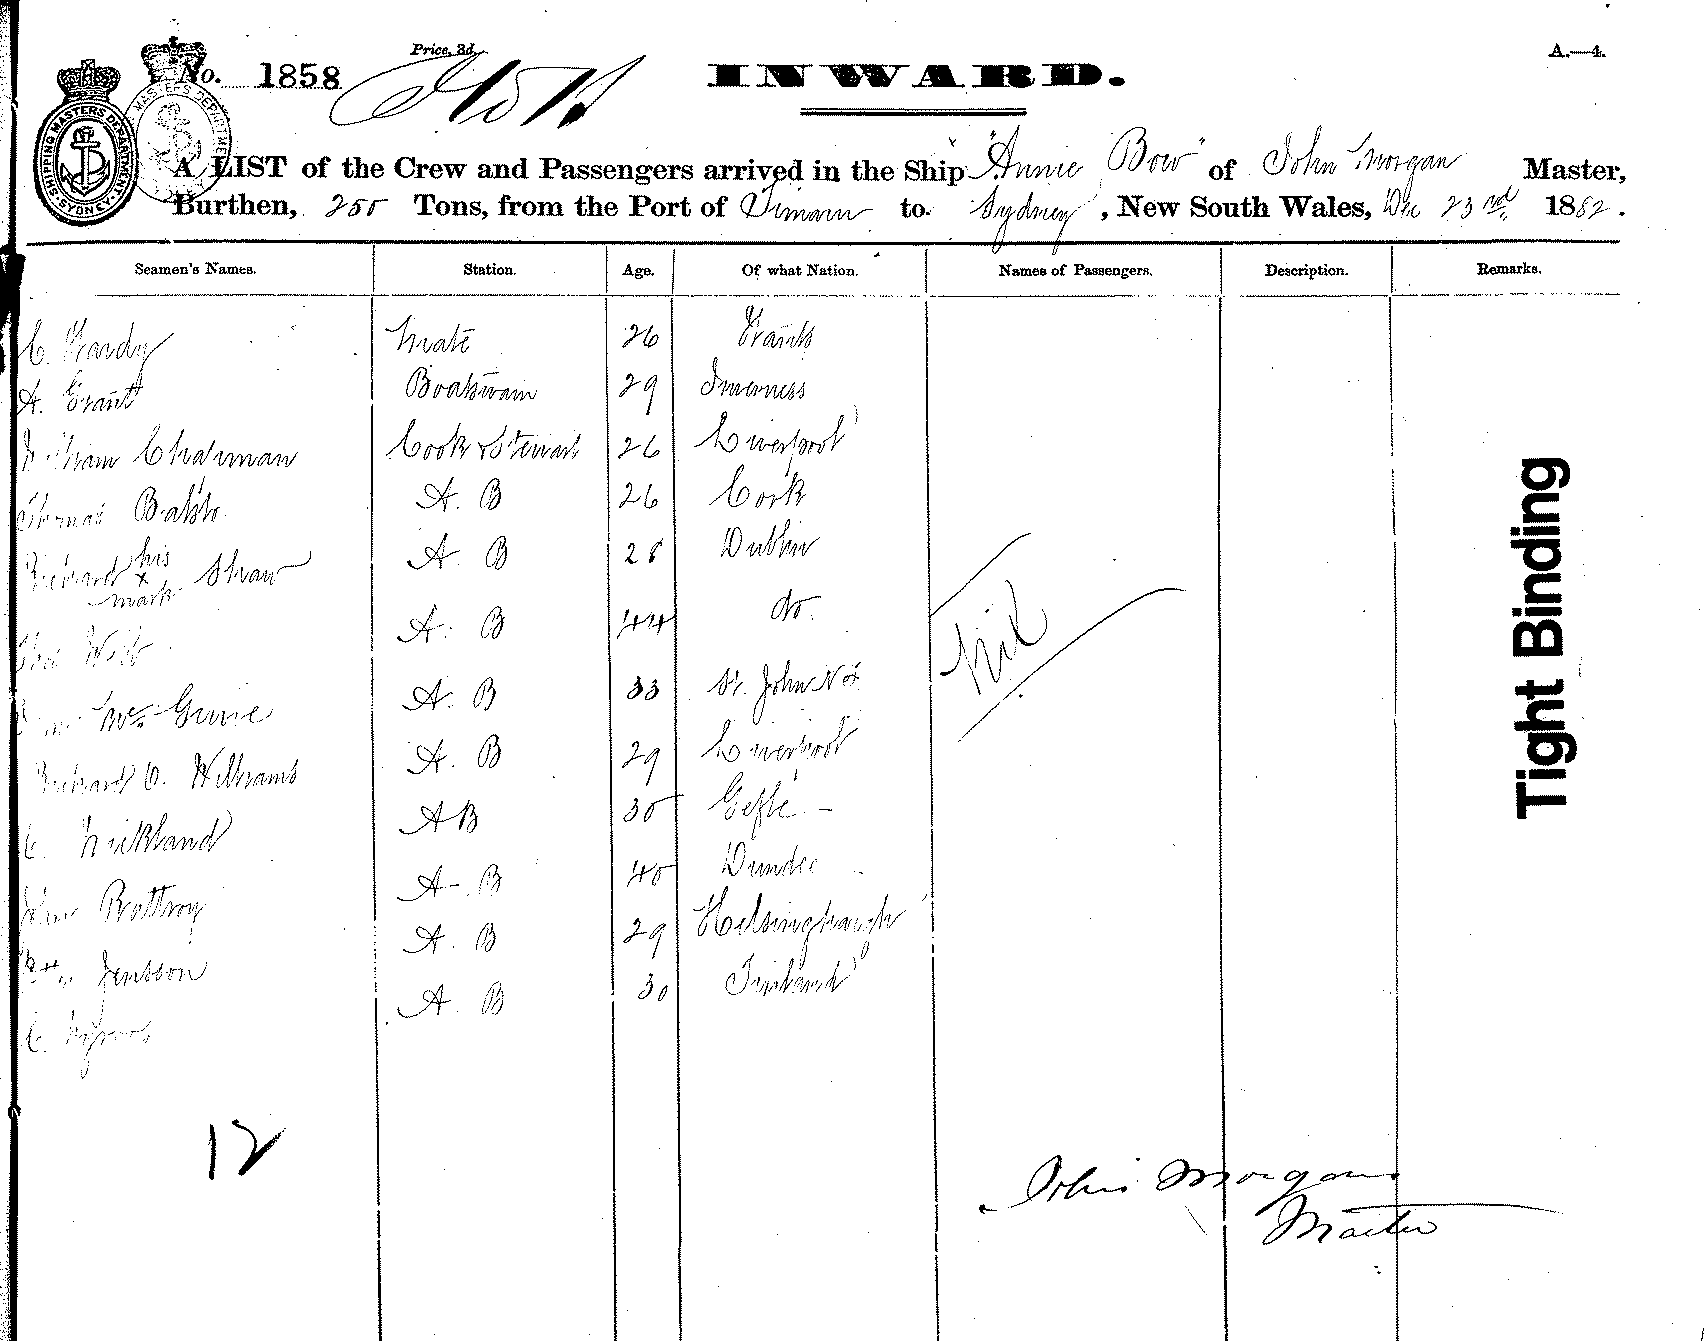 A.—4.
Price, 3d.
No. 1858
INWARD.
SHIPPING MASTERS DEPARTMENT SYDNEY
A LIST of the Crew and Passengers arrived in the Ship "Annie Bow" of John Morgan Master,
Burthen, 250 Tons, from the Port of to Sydney, New South Wales, Dec 23rd 1882.
Seamen's Names. Station. Age. Of what Nation. Names of Passengers. Description. Remarks.
C. Mate 26
A. Grant Boatswain 29 Inverness
William Chapman Cook & Steward 26 Liverpool
Thomas A. B 26 Cork
Richard his x mark Shaw A. B 28 Dublin
Webb A. B 44 do.
Mc. A. B 33 St. John
Richard Williams A. B 29 Liverpool
C. A B 30 Gefle
John Rattray A. B 40 Dundee
Jensson A. B 29
C. A. B 30 Finland
Nil
12
John Morgan
Master
Tight Binding